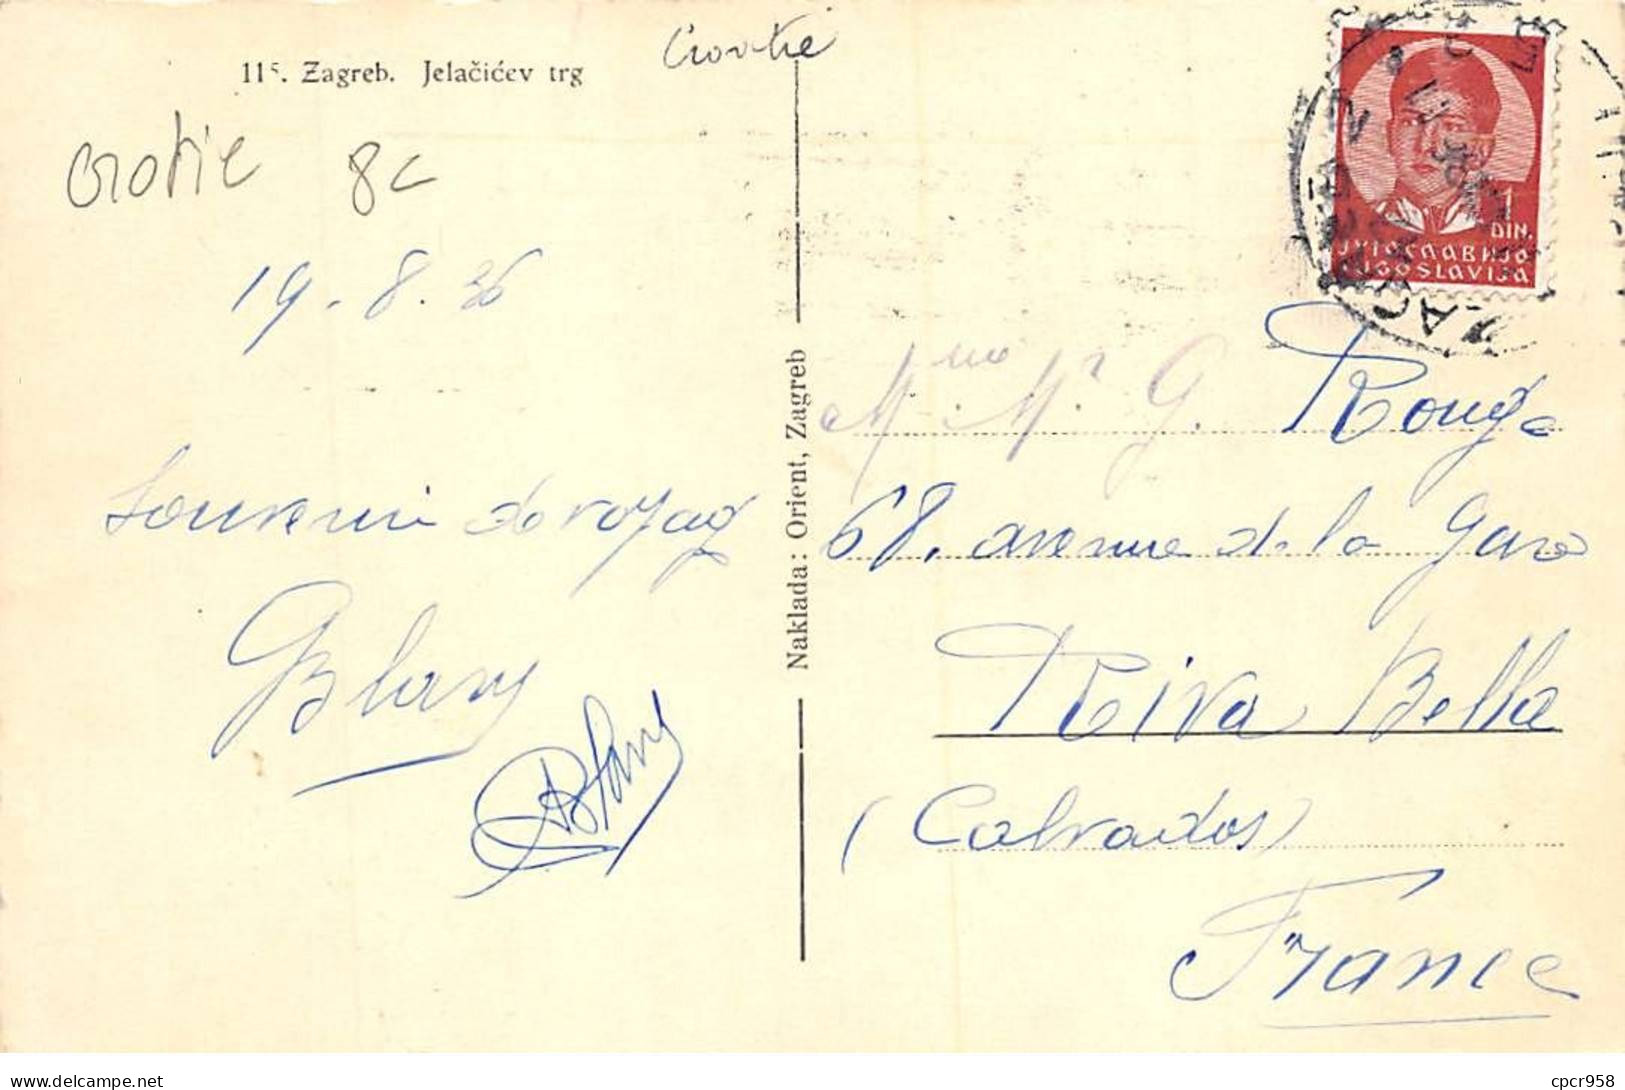 115. Zagreb. Jelačićev trg
Croatie
crotie 8c
19.8.36
Souvenir de voyage
Blany
Blany
Naklada: Orient, Zagreb
1
DIN.
ЈУГОСЛАВИЈА
JUGOSLAVIJA
ZAGREB
Mme Mr G. Rouge
68. avenue de la Gare
Riva Bella
(Calvados)
France
delcampe.net
cpcr958